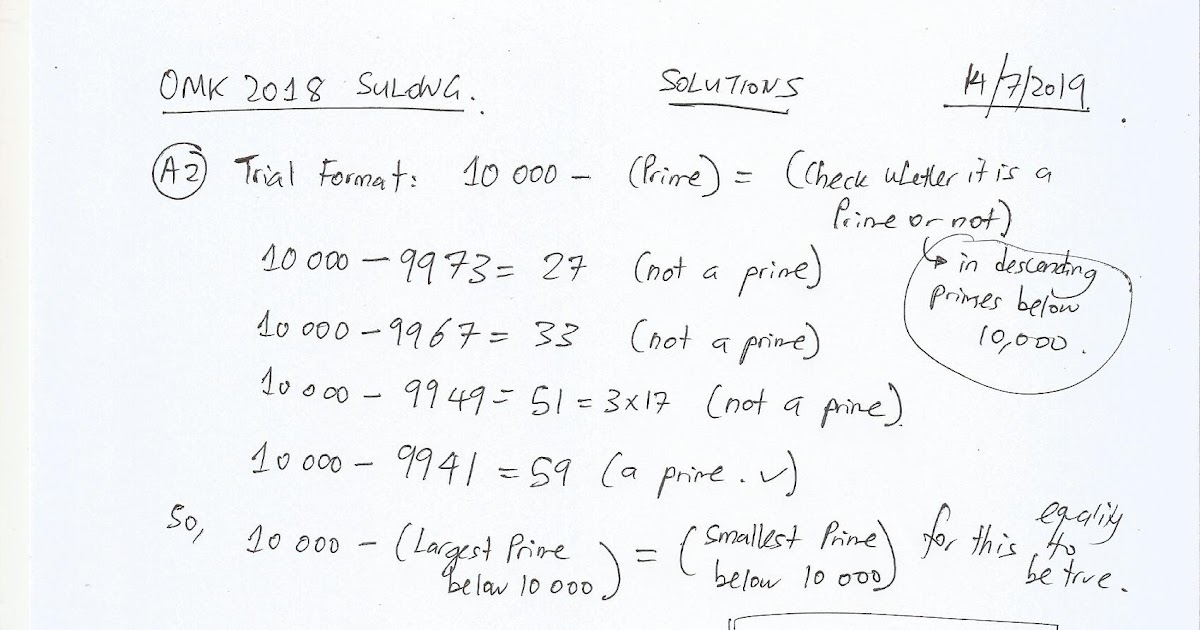 OMK 2018 SULONG. SOLUTIONS 14/7/2019.
A2 Trial Format: 10 000 – (Prime) = (Check whether it is a
Prime or not)
↳ in descending
primes below
10,000.
10 000 – 9973 = 27 (not a prime)
10 000 – 9967 = 33 (not a prime)
10 000 – 9949 = 51 = 3×17 (not a prime).
10 000 – 9941 = 59 (a prime. ✓)
So, 10 000 – (Largest Prime below 10 000) = (Smallest Prime below 10 000) for this equality to be true.